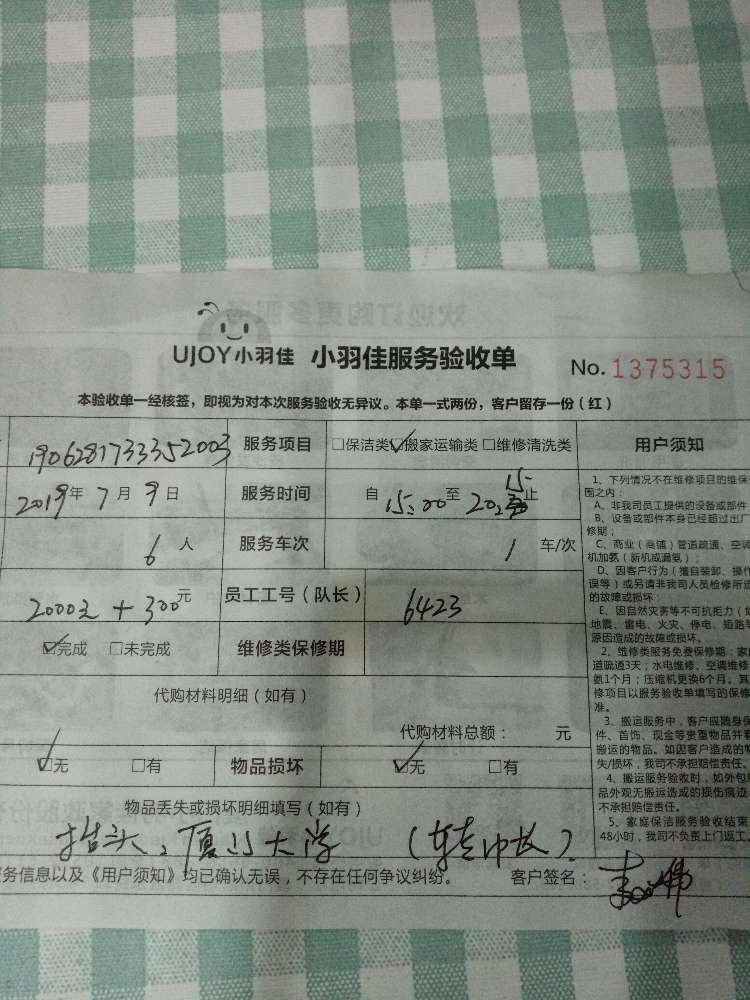 UJOY小羽佳 小羽佳服务验收单 No. 1375315
本验收单一经核签，即视为对本次服务验收无异议。本单一式两份，客户留存一份（红）
19062817333352003 服务项目 □保洁类 ☑搬家运输类 □维修清洗类 用户须知
2019年7月9日 服务时间 自 15:00 至 止
6人 服务车次 1 车/次
2000元 + 300元 员工工号（队长） 6423
☑完成 □未完成 维修类保修期
代购材料明细（如有）
代购材料总额： 元
☑无 □有 物品损坏 ☑无 □有
物品丢失或损坏明细填写（如有）
抬头：厦门大学
务信息以及《用户须知》均已确认无误，不存在任何争议纠纷。 客户签名：
1、下列情况不在维修项目的维保
围之内：
A、非我司员工提供的设备或部件
B、设备或部件本身已经超过出厂
修期；
C、商业（商铺）管道疏通、空调
机加氨（新机或漏氨）；
D、因客户行为（擅自装卸、操作
误等）或另请非我司人员检修所造
的故障或损坏；
E、因自然灾害等不可抗拒力（如
地震、雷电、火灾、停电、短路等
原因造成的故障或损坏。
2、维修类服务免费保修期：家庭
道疏通3天；水电维修、空调维修
氨1个月；压缩机更换6个月。其
修项目以服务验收单填写的保修
准。
3、搬运服务中，客户应随身保
件、首饰、现金等贵重物品并看
搬运的物品。如因客户造成的物
失/损坏，我司不承担赔偿责任。
4、搬运服务验收时，如外包装
品外观无搬运造成的损伤痕迹
不承担赔偿责任。
5、家庭保洁服务验收结束
48小时，我司不负责上门返工。